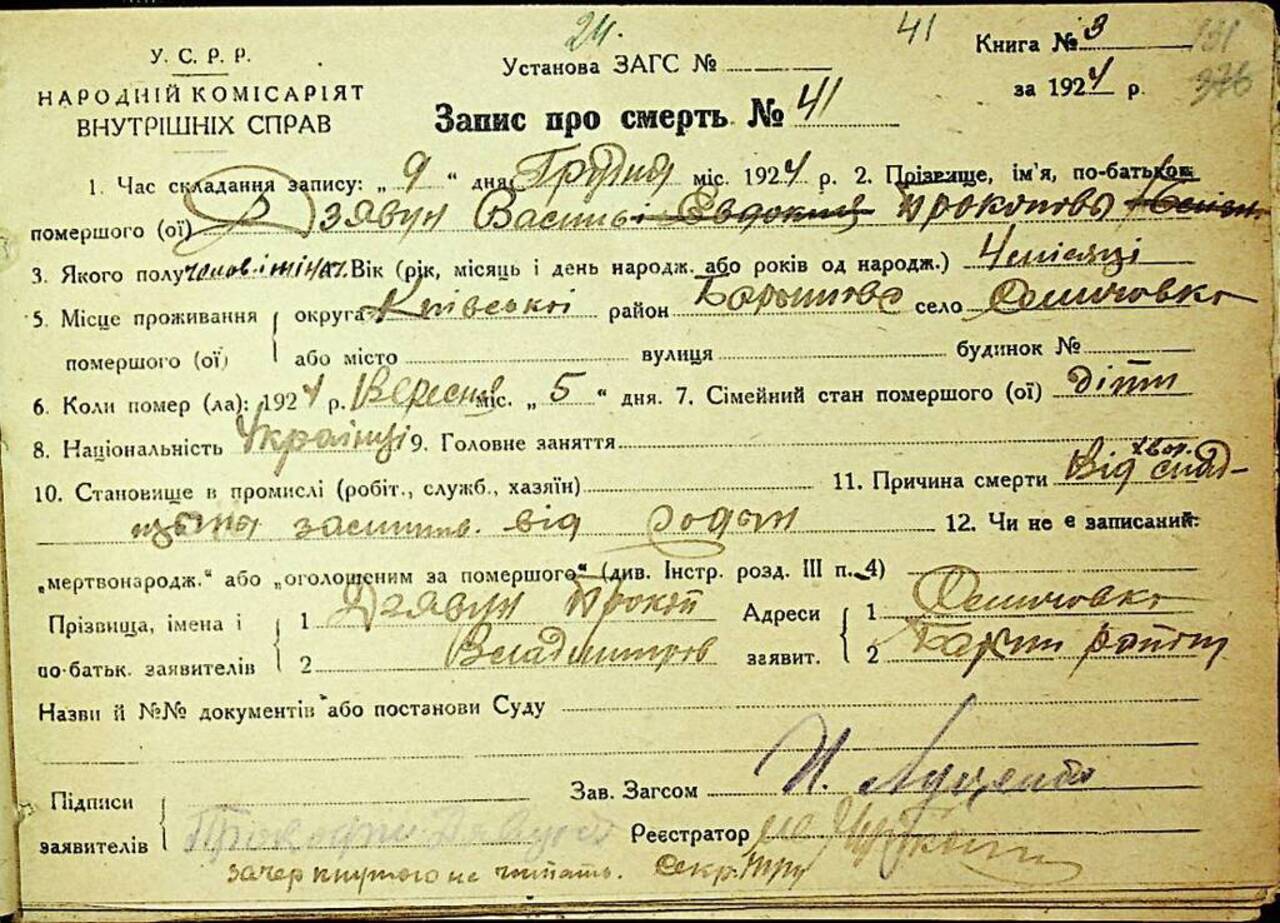 24.
41
У. С. Р. Р.
НАРОДНІЙ КОМІСАРІЯТ
ВНУТРІШНІХ СПРАВ
Установа ЗАГС №
Книга № 3
за 1924 р.
376
Запис про смерть № 41
1. Час складання запису: „ 9 “ дня Грудня міс. 1924 р. 2. Прізвище, ім'я, по-батькові
помершого (ої) Дзявун Василь Євдокия Прокопово
3. Якого полу Вік (рік, місяць і день народж. або років од народж.) 4 місяці
5. Місце проживання помершого (ої) округа Київської район село
або місто вулиця будинок №
6. Коли помер (ла): 1924 р. Вересня міс. „ 5 “ дня. 7. Сімейний стан помершого (ої) діти
8. Національність Українці 9. Головне заняття
10. Становище в промислі (робіт., служб., хазяїн) 11. Причина смерти Від
від родин 12. Чи не є записаний:
„мертвонародж.“ або „оголошеним за помершого“ (див. Інстр. розд. III п. 4)
Прізвища, імена і по-батьк. заявителів 1 Дзявун Прокоп Адреси заявит. 1
2 Владимиров 2 район
Назви й №№ документів або постанови Суду
Підписи заявителів
Зав. Загсом И. Луценко
Реєстратор
зачеркнутого не читать. Секр.